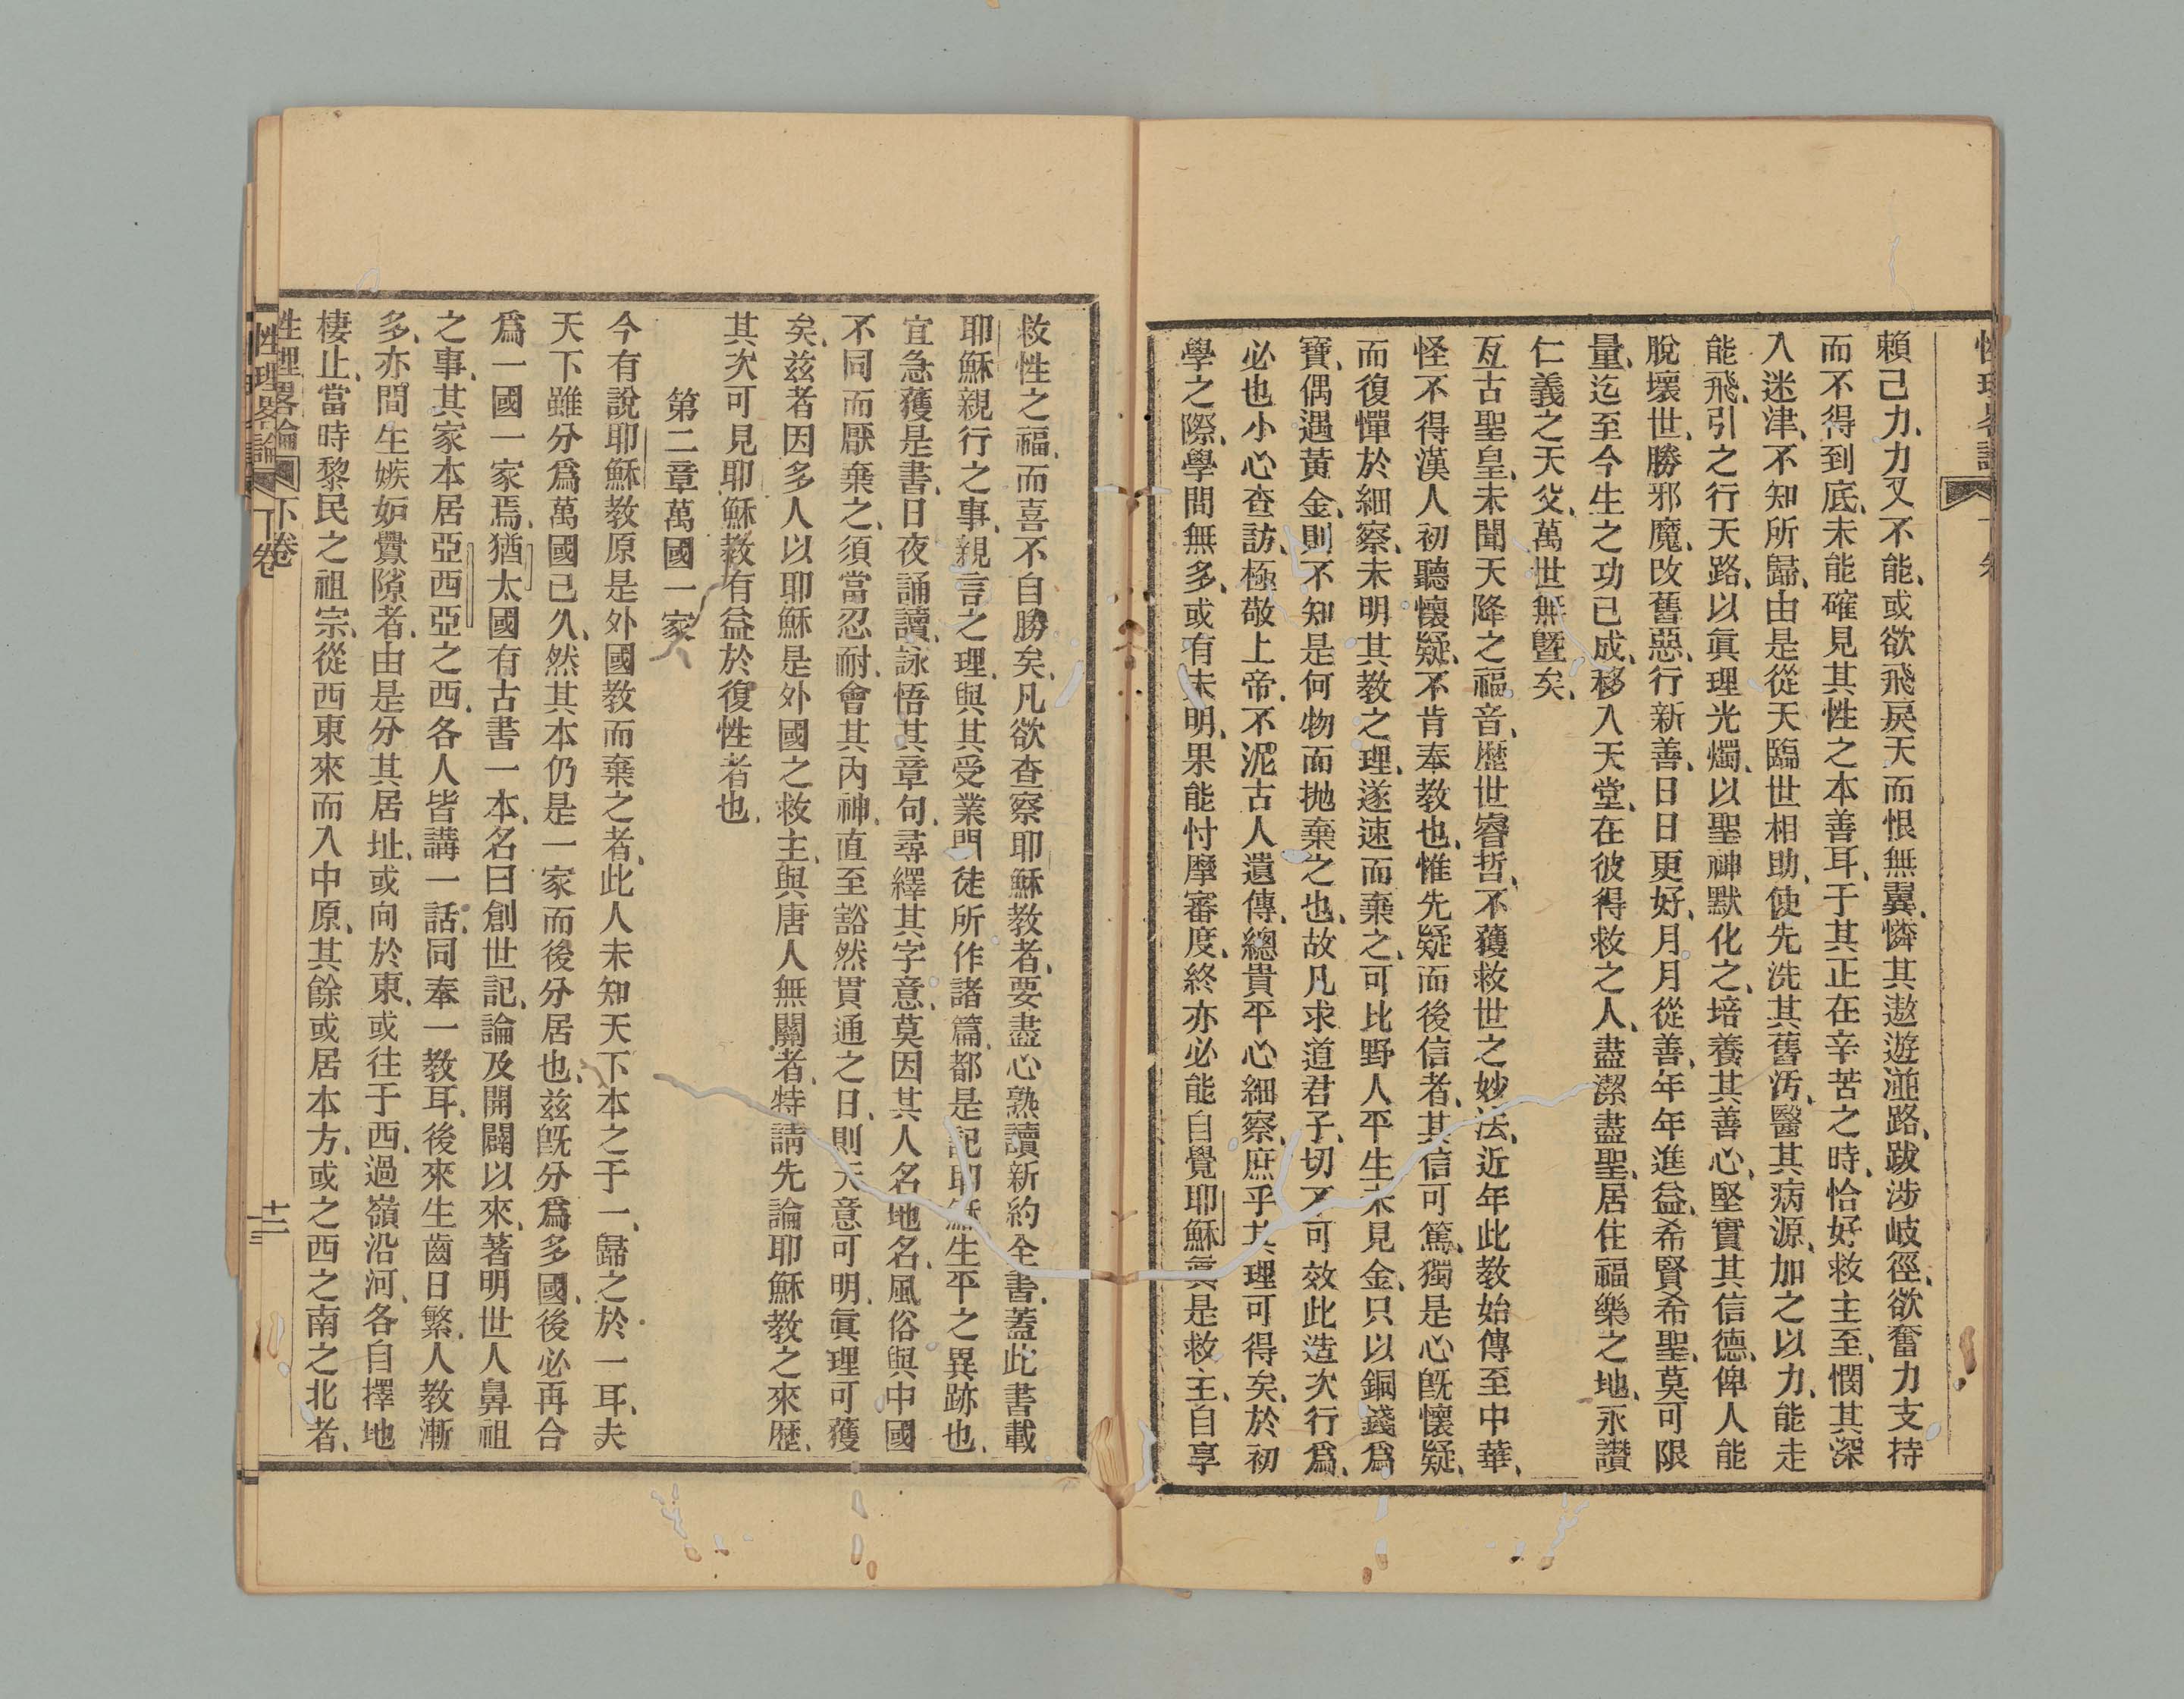 賴己力、力又不能、或欲飛戾天而恨無翼、憐其遨遊逆路、跋涉岐徑、欲奮力支持
而不得到底、未能確見其性之本善耳、于其正在辛苦之時、恰好救主至、憫其深
入迷津、不知所歸、由是從天臨世相助、使先洗其舊汚、醫其病源、加之以力、能走
能飛、引之行天路、以眞理光燭、以聖神默化之、培養其善心、堅實其信德、俾人能
脫壞世、勝邪魔、改舊惡、行新善、日日更好、月月從善、年年進益、希賢希聖、莫可限
量、迄至今生之功已成、移入天堂、在彼得救之人、盡潔盡聖、居住福樂之地、永讚
仁義之天父、萬世無曁矣、
亙古聖皇、未聞天降之福音、歷世睿哲、不獲救世之妙法、近年此教始傳至中華、
怪不得漢人初聽懷疑、不肯奉教也、惟先疑而後信者、其信可篤、獨是心旣懷疑、
而復憚於細察、未明其教之理、遂速而棄之、可比野人平生未見金、只以銅錢爲
寶、偶遇黃金、則不知是何物而抛棄之也、故凡求道君子、切不可效此造次行爲、
必也小心查訪、極敬上帝、不泥古人遺傳、總貴平心細察、庶乎其理可得矣、於初
學之際、學問無多、或有未明、果能忖摩審度、終亦必能自覺耶穌眞是救主、自享
救性之福、而喜不自勝矣、凡欲查察耶穌教者、要盡心熟讀新約全書、蓋此書載
耶穌親行之事、親言之理、與其受業門徒所作諸篇、都是記耶穌生平之異跡也、
宜急獲是書、日夜誦讀、詠悟其章句、尋繹其字意、莫因其人名地名、風俗與中國
不同而厭棄之、須當忍耐、會其內神、直至豁然貫通之日、則天意可明、眞理可獲
矣、玆者因多人以耶穌是外國之救主、與唐人無關者、特請先論耶穌教之來歷、
其次可見耶穌教有益於復性者也、
第二章萬國一家
今有說耶穌教原是外國教而棄之者、此人未知天下本之于一、歸之於一耳、夫
天下雖分爲萬國已久、然其本仍是一家而後分居也、玆旣分爲多國、後必再合
爲一國一家焉、猶太國有古書一本、名曰創世記、論及開闢以來、著明世人鼻祖
之事、其家本居亞西亞之西、各人皆講一話、同奉一教耳、後來生齒日繁、人教漸
多、亦間生嫉妒釁隙者、由是分其居址、或向於東、或往于西、過嶺沿河、各自擇地
棲止、當時黎民之祖宗、從西東來而入中原、其餘或居本方、或之西之南之北者、
性理畧論 下卷
十二
性理畧論 下卷